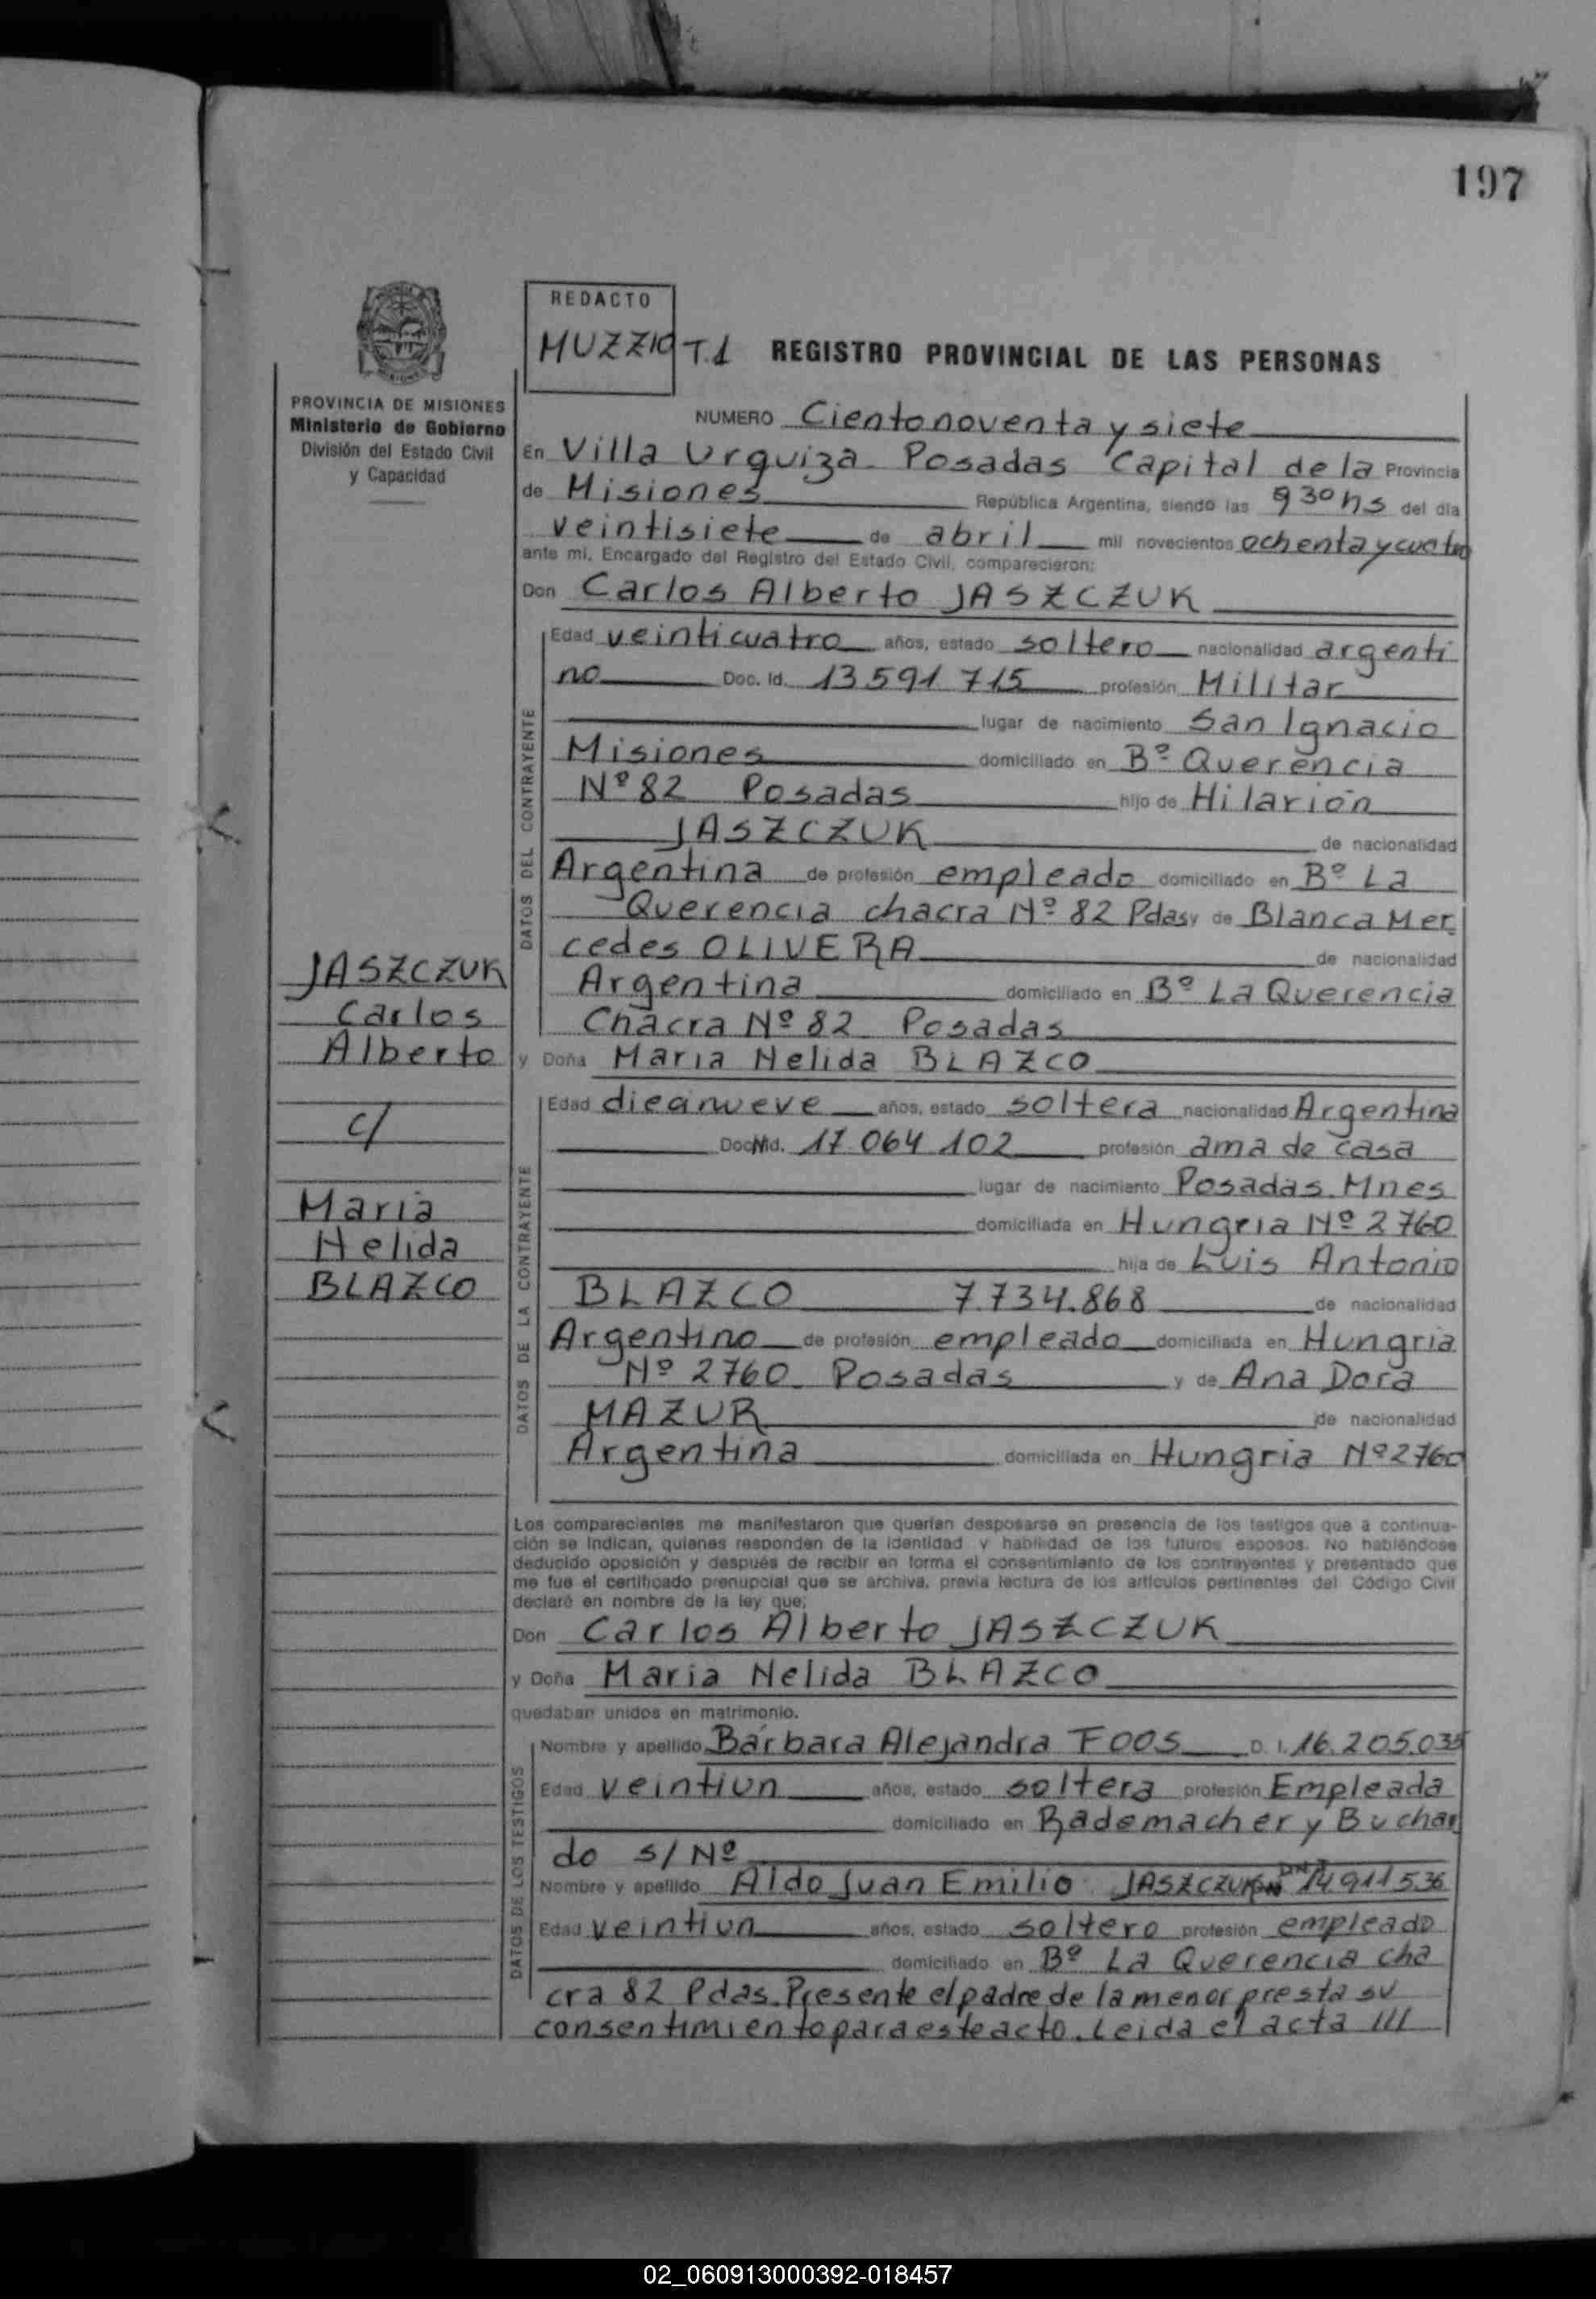 197
REDACTO
MUZZIO T.1 REGISTRO PROVINCIAL DE LAS PERSONAS
PROVINCIA DE MISIONES
Ministerio de Gobierno
División del Estado Civil
y Capacidad
NUMERO Ciento noventa y siete
En Villa Urquiza. Posadas Capital de la Provincia
de Misiones República Argentina, siendo las 9 30 hs del día
veintisiete de abril mil novecientos ochenta y cuatro
ante mi, Encargado del Registro del Estado Civil, comparecieron:
Don Carlos Alberto JASZCZUK
DATOS DEL CONTRAYENTE
Edad veinticuatro años, estado soltero nacionalidad argenti
no Doc. Id. 13.591.715 profesión Militar
lugar de nacimiento San Ignacio
Misiones domiciliado en Bº Querencia
Nº 82 Posadas hijo de Hilarión
JASZCZUK de nacionalidad
Argentina de profesión empleado domiciliado en Bº La
Querencia chacra Nº 82 Pdas y de Blanca Mer
cedes OLIVERA de nacionalidad
Argentina domiciliado en Bº La Querencia
Chacra Nº 82 Posadas
JASZCZUK
Carlos
Alberto
c/
Maria
Nelida
BLAZCO
y Doña Maria Nelida BLAZCO
DATOS DE LA CONTRAYENTE
Edad diecinueve años, estado soltera nacionalidad Argentina
Doc. Id. 17.064.102 profesión ama de casa
lugar de nacimiento Posadas. Mnes
domiciliada en Hungria Nº 2760
hija de Luis Antonio
BLAZCO 7.734.868 de nacionalidad
Argentino de profesión empleado domiciliada en Hungria
Nº 2760 Posadas y de Ana Dora
MAZUR de nacionalidad
Argentina domiciliada en Hungria Nº 2760
Los comparecientes me manifestaron que querían desposarse en presencia de los testigos que a continua-
ción se indican, quienes responden de la identidad y habilidad de los futuros esposos. No habiéndose
deducido oposición y después de recibir en forma el consentimiento de los contrayentes y presentado que
me fue el certificado prenupcial que se archiva, previa lectura de los artículos pertinentes del Código Civil
declaré en nombre de la ley que;
Don Carlos Alberto JASZCZUK
y Doña Maria Nelida BLAZCO
quedaban unidos en matrimonio.
DATOS DE LOS TESTIGOS
Nombre y apellido Bárbara Alejandra FOOS D. I. 16.205.035
Edad veintiun años, estado soltera profesión Empleada
domiciliado en Rademacher y Buchar
do s/Nº
Nombre y apellido Aldo Juan Emilio JASZCZUK DNI 14.911.536
Edad veintiun años, estado soltero profesión empleado
domiciliado en Bº La Querencia cha
cra 82 Pdas. Presente el padre de la menor presta su
consentimiento para este acto. Leida el acta ///
02_060913000392-018457